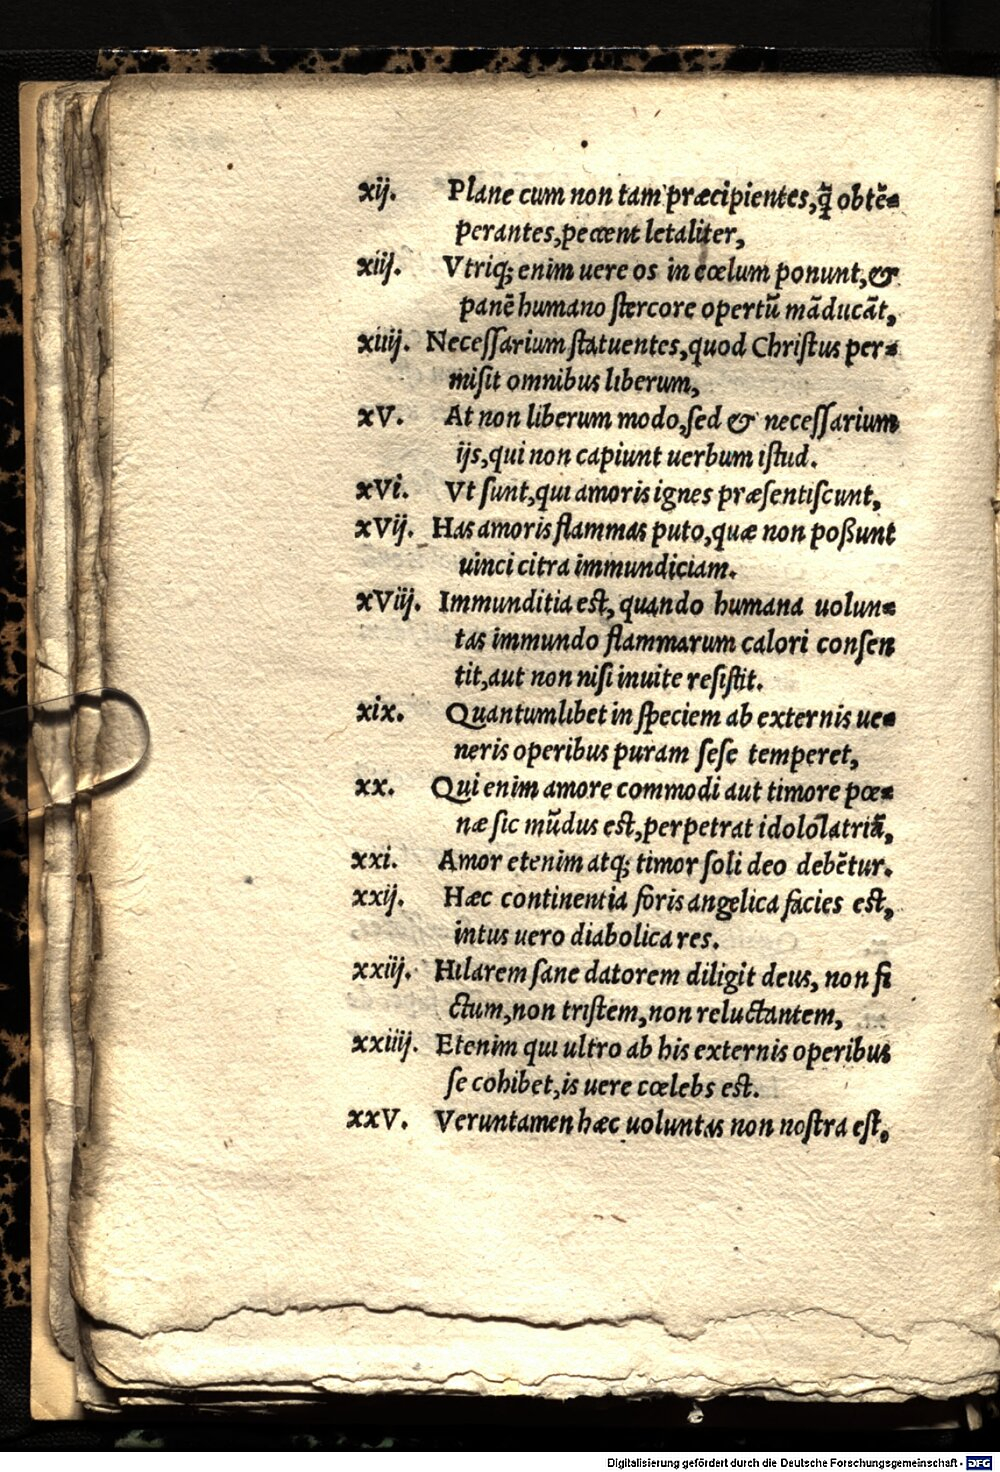 xij. Plane cum non tam præcipientes, q̃ obtẽ=
perantes, peccent letaliter,
xiij. Vtriq; enim uere os in cœlum ponunt, &
panẽ humano ſtercore opertũ mãducãt,
xiiij. Neceſſarium ſtatuentes, quod Chriſtus per=
miſit omnibus liberum,
xV. At non liberum modo, ſed & neceſſarium
ijs, qui non capiunt uerbum iſtud.
xVi. Vt ſunt, qui amoris ignes præſentiſcunt,
xVij. Has amoris flammas puto, quæ non poßunt
uinci citra immundiciam.
xViij. Immunditia eſt, quando humana uolun=
tas immundo flammarum calori conſen
tit, aut non niſi inuite reſiſtit.
xix. Quantumlibet in ſpeciem ab externis ue=
neris operibus puram ſeſe temperet,
xx. Qui enim amore commodi aut timore pœ=
næ ſic mũdus eſt, perpetrat idololatriã,
xxi. Amor etenim atq; timor ſoli deo debẽtur.
xxij. Hæc continentia foris angelica facies eſt,
intus uero diabolica res.
xxiij. Hilarem ſane datorem diligit deus, non fi
ctum, non triſtem, non reluctantem,
xxiiij. Etenim qui ultro ab his externis operibus
ſe cohibet, is uere cœlebs eſt.
xxV. Veruntamen hæc uoluntas non noſtra eſt,
Digitalisierung gefördert durch die Deutsche Forschungsgemeinschaft - DFG